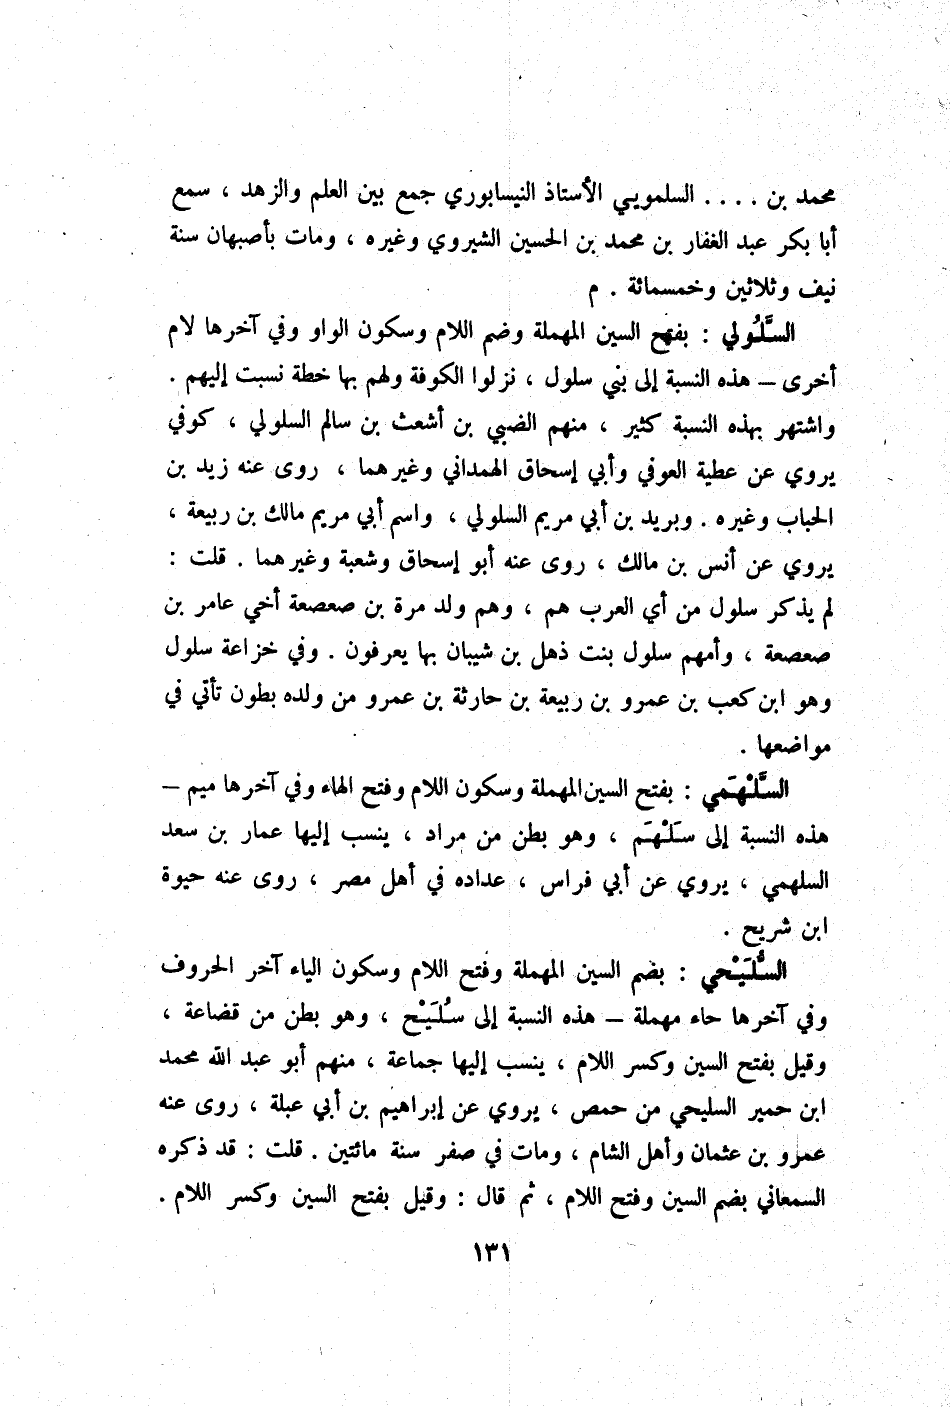 محمد بن . . . . السلمويي الأستاذ النيسابوري جمع بين العلم والزهد ، سمع
أبا بكر عبد الغفار بن محمد بن الحسين الشيروي وغيره ، ومات بأصبهان سنة
نيف وثلاثين وخمسمائة . م
السَّلُولي : بفتح السين المهملة وضم اللام وسكون الواو وفي آخرها لام
أخرى – هذه النسبة إلى بني سلول ، نزلوا الكوفة ولهم بها خطة نسبت إليهم .
واشتهر بهذه النسبة كثير ، منهم الضبي بن أشعث بن سالم السلولي ، كوفي
يروي عن عطية العوفي وأبي إسحاق الهمداني وغيرهما ، روى عنه زيد بن
الحباب وغيره . وبريد بن أبي مريم السلولي ، واسم أبي مريم مالك بن ربيعة ،
يروي عن أنس بن مالك ، روى عنه أبو إسحاق وشعبة وغيرهما . قلت :
لم يذكر سلول من أي العرب هم ، وهم ولد مرة بن صعصعة أخي عامر بن
صعصعة ، وأمهم سلول بنت ذهل بن شيبان بها يعرفون . وفي خزاعة سلول
وهو ابن كعب بن عمرو بن ربيعة بن حارثة بن عمرو من ولده بطون تأتي في
مواضعها .
السَّلْهَمي : بفتح السين المهملة وسكون اللام وفتح الهاء وفي آخرها ميم –
هذه النسبة إلى سَلْهَم ، وهو بطن من مراد ، ينسب إليها عمار بن سعد
السلهمي ، يروي عن أبي فراس ، عداده في أهل مصر ، روى عنه حيوة
ابن شريح .
السُّلَيْحي : بضم السين المهملة وفتح اللام وسكون الياء آخر الحروف
وفي آخرها حاء مهملة – هذه النسبة إلى سُلَيْح ، وهو بطن من قضاعة ،
وقيل بفتح السين وكسر اللام ، ينسب إليها جماعة ، منهم أبو عبد الله محمد
ابن حمير السليحي من حمص ، يروي عن إبراهيم بن أبي عبلة ، روى عنه
عمرو بن عثمان وأهل الشام ، ومات في صفر سنة مائتين . قلت : قد ذكره
السمعاني بضم السين وفتح اللام ، ثم قال : وقيل بفتح السين وكسر اللام .
١٣١